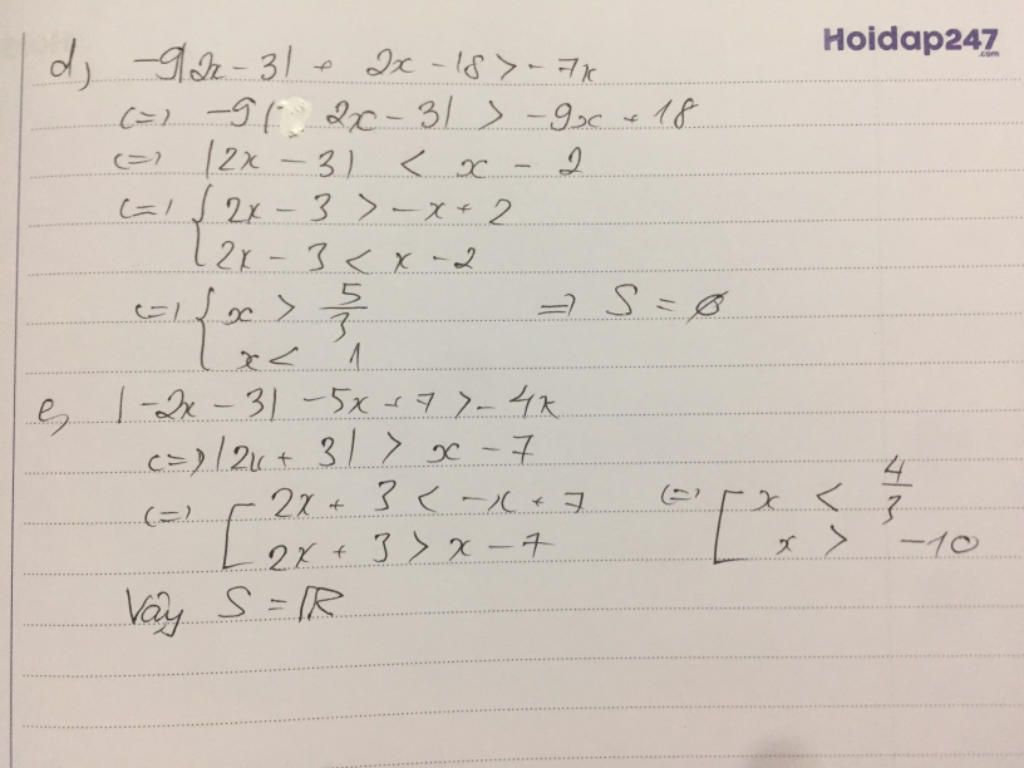 Hoidap247
.com
d, -9|2x - 3| + 2x - 18 > - 7x
<=> -9| 2x - 3| > -9x + 18
<=> |2x - 3| < x - 2
<=> { 2x - 3 > -x + 2
2x - 3 < x - 2
<=> { x > 5/3 => S = ∅
x < 1
e, |-2x - 3| - 5x + 7 > - 4x
<=> |2x + 3| > x - 7
<=> [ 2x + 3 < -x + 7 <=> [ x < 4/3
2x + 3 > x - 7 x > -10
Vậy S = ℝ